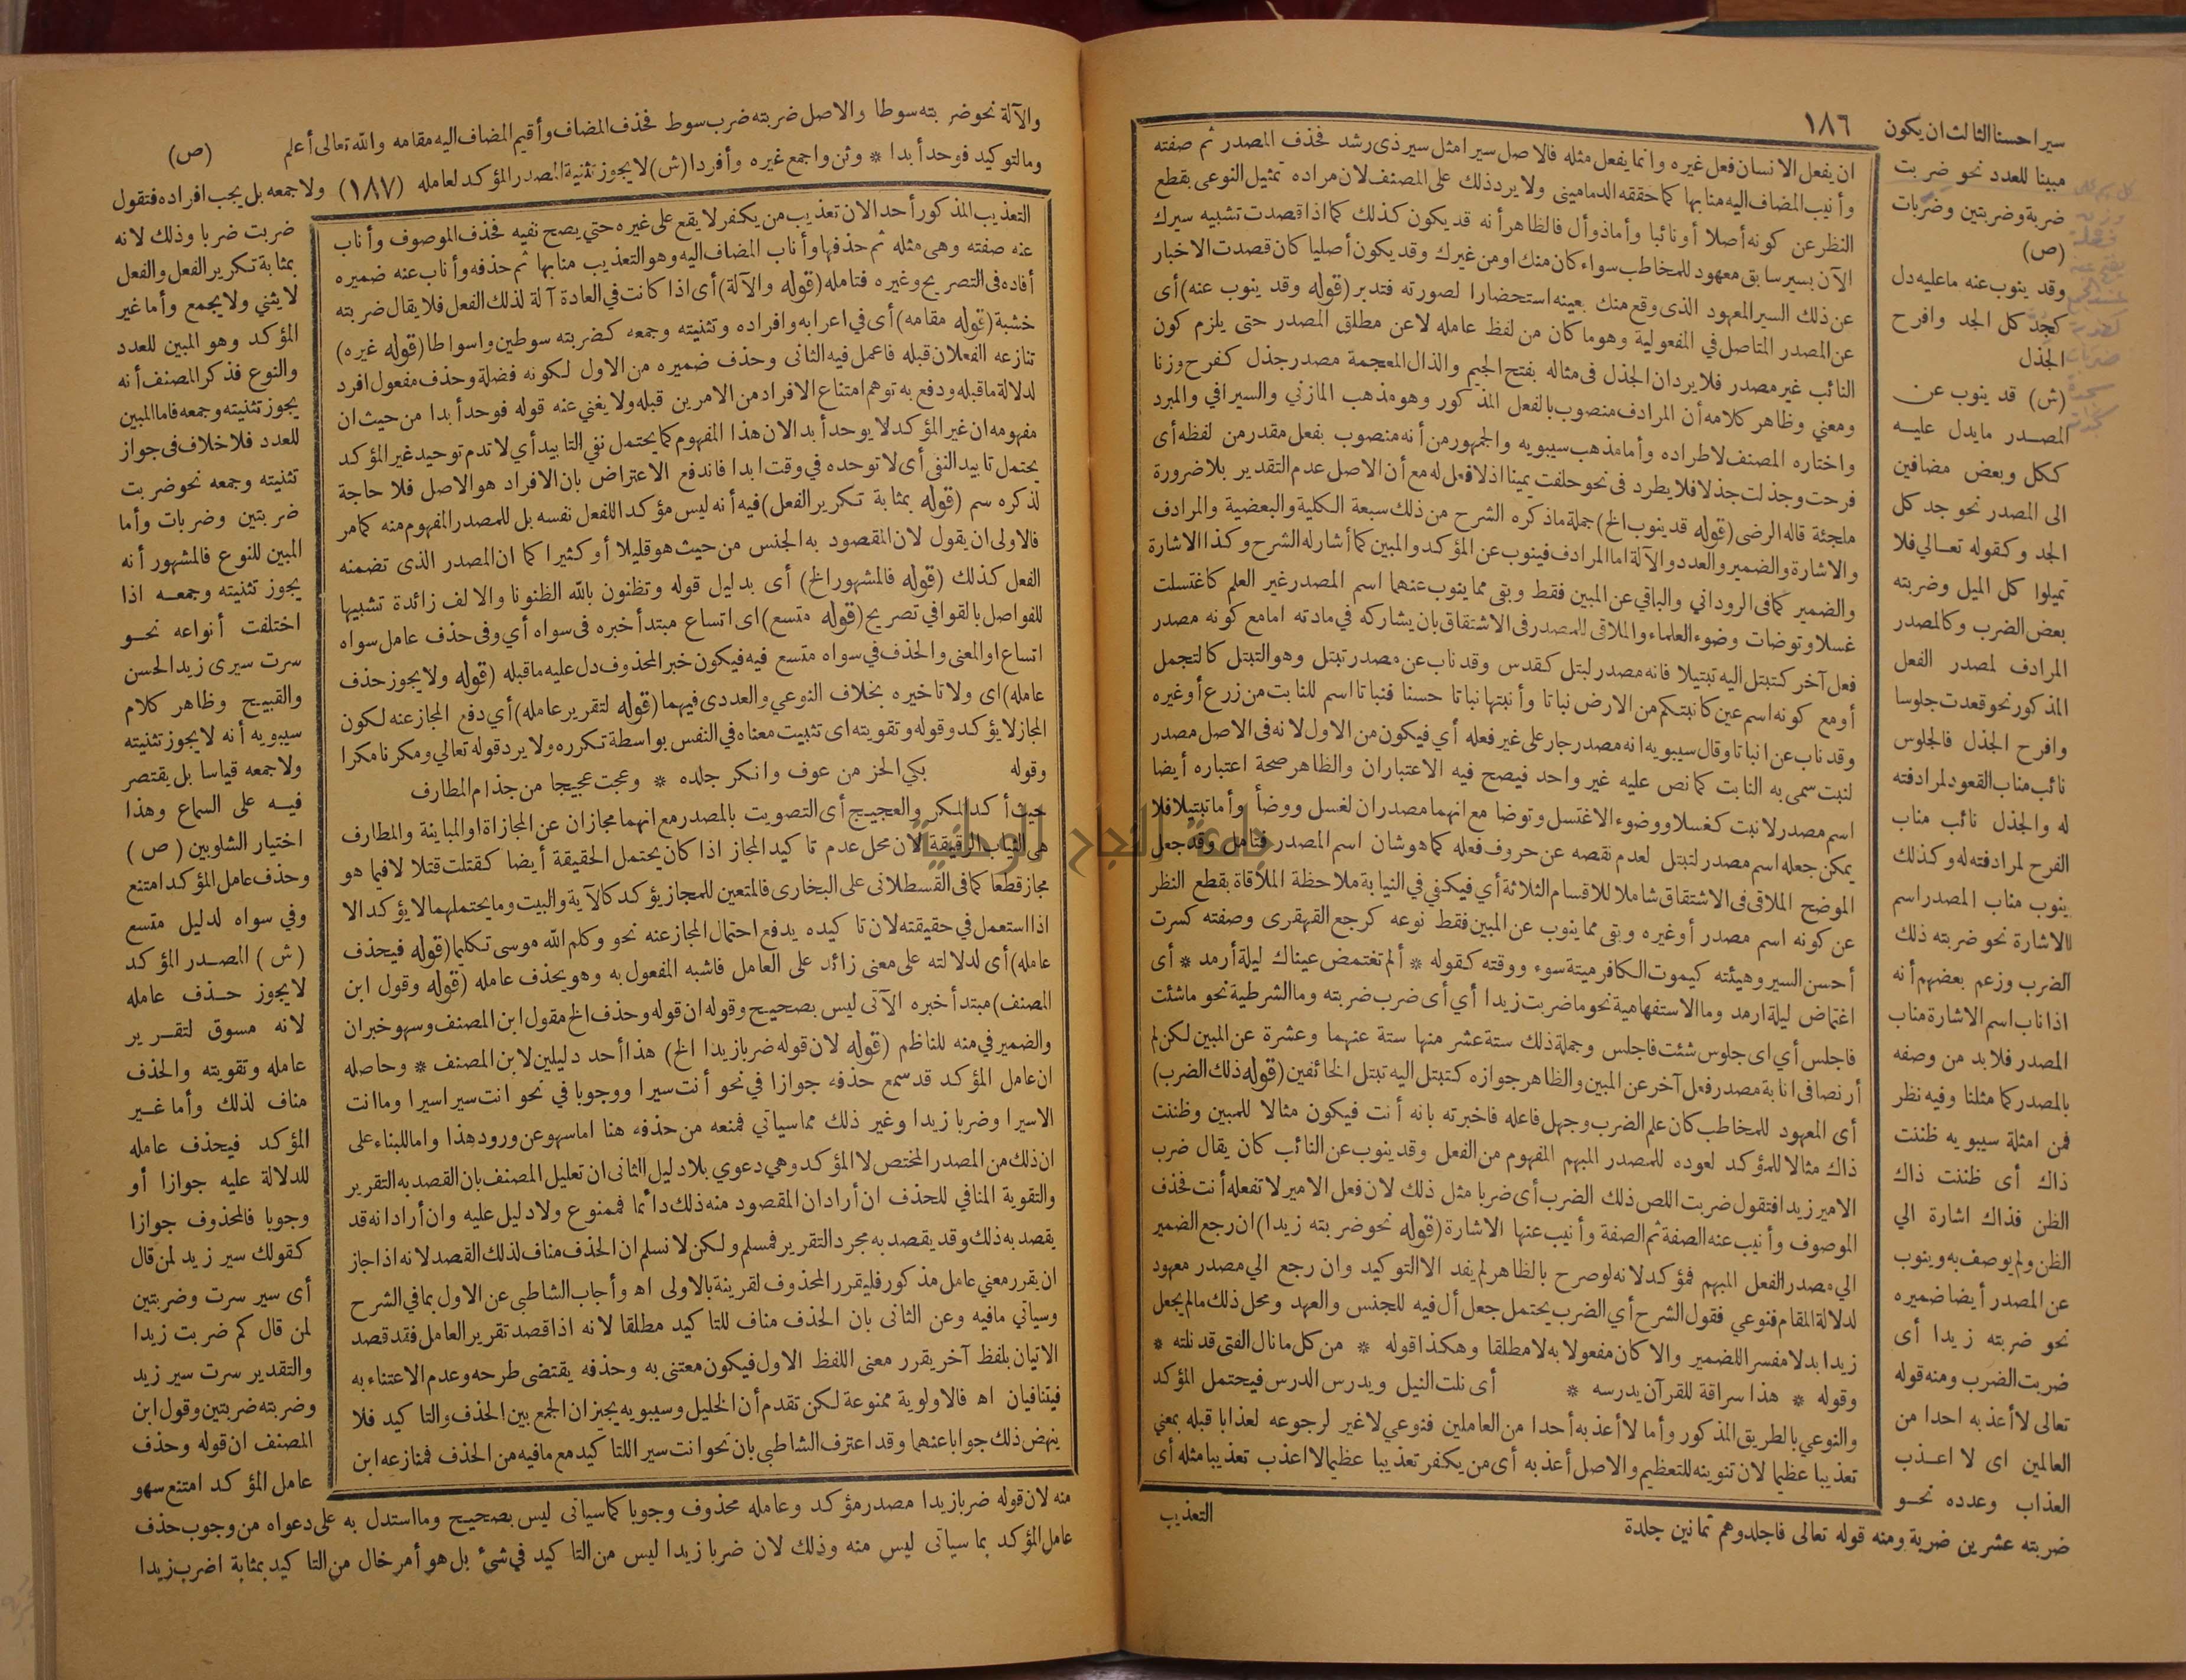 ١٨٦
سيرا حسنا الثالث ان يكون
مبينا للعدد نحو ضربت
ضربة وضربتين وضربات
(ص)
وقد ينوب عنه ما عليه دل
كجد كل الجد وافرح
الجذل
(ش) قد ينوب عن
المصدر ما يدل عليه
ككل وبعض مضافين
الى المصدر نحو جد كل
الجد وكقوله تعالي فلا
تميلوا كل الميل وضربته
بعض الضرب وكالمصدر
المرادف لمصدر الفعل
المذكور نحو قعدت جلوسا
وافرح الجذل فالجلوس
نائب مناب القعود لمرادفته
له والجذل نائب مناب
الفرح لمرادفته له وكذلك
ينوب مناب المصدر اسم
الاشارة نحو ضربته ذلك
الضرب وزعم بعضهم أنه
اذا ناب اسم الاشارة مناب
المصدر فلا بد من وصفه
بالمصدر كما مثلنا وفيه نظر
فمن امثلة سيبويه ظننت
ذاك أى ظننت ذاك
الظن فذاك اشارة الي
الظن ولم يوصف به وينوب
عن المصدر أيضا ضميره
نحو ضربته زيدا أى
ضربت الضرب ومنه قوله
تعالى لا أعذبه احدا من
العالمين اى لا اعذب
العذاب وعدده نحو
ضربته عشرين ضربة ومنه قوله تعالى فاجلدوهم ثمانين جلدة
ان يفعل الانسان فعل غيره وانما يفعل مثله فالاصل سيرا مثل سير ذى رشد فحذف المصدر ثم صفته
وأنيب المضاف اليه منابها كما حققه الدماميني ولا يرد ذلك على المصنف لان مراده تمثيل النوعى بقطع
النظر عن كونه أصلا أو نائبا وأما ذو أل فالظاهر أنه قد يكون كذلك كما اذا قصدت تشبيه سيرك
الآن بسير سابق معهود للمخاطب سواء كان منك او من غيرك وقد يكون أصليا كان قصدت الاخبار
عن ذلك السير المعهود الذى وقع منك بعينه استحضارا لصورته فتدبر (قوله وقد ينوب عنه) أى
عن المصدر المتاصل في المفعولية وهو ما كان من لفظ عامله لا عن مطلق المصدر حتى يلزم كون
النائب غير مصدر فلا يرد ان الجذل فى مثاله بفتح الجيم والذال المعجمة مصدر جذل كفرح وزنا
ومعني وظاهر كلامه أن المرادف منصوب بالفعل المذكور وهو مذهب المازني والسيرافي والمبرد
واختاره المصنف لاطراده وأما مذهب سيبويه والجمهور من أنه منصوب بفعل مقدر من لفظه أى
فرحت وجذلت جذلا فلا يطرد فى نحو حلفت يمينا اذ لا فعل له مع أن الاصل عدم التقدير بلا ضرورة
ملجئة قاله الرضى (قوله قد ينوب الخ) جملة ماذكره الشرح من ذلك سبعة الكلية والبعضية والمرادف
والاشارة والضمير والعدد والآلة اما المرادف فينوب عن المؤكد والمبين كما أشار له الشرح وكذا الاشارة
والضمير كما فى الروداني والباقي عن المبين فقط وبقى مما ينوب عنهما اسم المصدر غير العلم كاغتسلت
غسلا وتوضات وضوء العلماء والملاقى للمصدر فى الاشتقاق بان يشاركه في مادته امامع كونه مصدر
فعل آخر كتبتل اليه تبتيلا فانه مصدر لبتل كقدس وقد ناب عن مصدر تبتل وهو التبتل كالتجمل
أو مع كونه اسم عين كانبتكم من الارض نباتا وأنبتها نباتا حسنا فنباتا اسم للنابت من زرع أو غيره
وقد ناب عن انباتا وقال سيبويه انه مصدر جار على غير فعله أي فيكون من الاول لانه فى الاصل مصدر
لنبت سمى به النابت كما نص عليه غير واحد فيصح فيه الاعتباران والظاهر صحة اعتباره أيضا
اسم مصدر لانبت كغسلا ووضوء الاغتسل وتوضا مع انهما مصدران لغسل ووضأ وأما تبتيلا فلا
يمكن جعله اسم مصدر لتبتل لعدم نقصه عن حروف فعله كما هو شان اسم المصدر فتامل وقد جعل
الموضح الملاقى فى الاشتقاق شاملا للاقسام الثلاثة أي فيكفي في النيابة ملاحظة الملاقاة بقطع النظر
عن كونه اسم مصدر أو غيره وبقى مما ينوب عن المبين فقط نوعه كرجع القهقرى وصفته كسرت
أحسن السير وهيئته كيموت الكافر ميتة سوء ووقته كقوله * ألم تغتمض عيناك ليلة أرمد * أى
اغتماض ليلة ارمد وما الاستفهامية نحو ما ضربت زيدا أي أى ضرب ضربته وما الشرطية نحو ماشئت
فاجلس أي اى جلوس شئت فاجلس وجملة ذلك ستة عشر منها ستة عنهما وعشرة عن المبين لكن لم
أر نصا فى انابة مصدر فعل آخر عن المبين والظاهر جوازه كتبتل اليه تبتل الخائفين (قوله ذلك الضرب)
أى المعهود للمخاطب كان علم الضرب وجهل فاعله فاخبرته بانه أنت فيكون مثالا للمبين وظننت
ذاك مثالا للمؤكد لعوده للمصدر المبهم المفهوم من الفعل وقد ينوب عن النائب كان يقال ضرب
الامير زيدا فتقول ضربت اللص ذلك الضرب أى ضربا مثل ذلك لان فعل الامير لا تفعله أنت فحذف
الموصوف وأنيب عنه الصفة ثم الصفة وأنيب عنها الاشارة (قوله نحو ضربته زيدا) ان رجع الضمير
الي مصدر الفعل المبهم فمؤكد لانه لو صرح بالظاهر لم يفد الا التوكيد وان رجع الي مصدر معهود
لدلالة المقام فنوعي فقول الشرح أي الضرب يحتمل جعل أل فيه للجنس والعهد ومحل ذلك مالم يجعل
زيدا بدلا مفسرا للضمير والا كان مفعولا به لا مطلقا وهكذا قوله * من كل ما نال الفتى قد نلته *
وقوله * هذا سراقة للقرآن يدرسه * أى نلت النيل ويدرس الدرس فيحتمل المؤكد
والنوعي بالطريق المذكور وأما لا أعذبه أحدا من العاملين فنوعي لا غير لرجوعه لعذابا قبله بمعني
تعذيبا عظيما لان تنوينه للتعظيم والاصل أعذبه أى من يكفر تعذيبا عظيما لا اعذب تعذيبا مثله أى
التعذيب
والآلة نحو ضربته سوطا والاصل ضربته ضرب سوط فحذف المضاف وأقيم المضاف اليه مقامه والله تعالى أعلم (ص)
ومالتوكيد فوحد أبدا * وثن واجمع غيره وأفردا (ش) لا يجوز تثنية المصدر المؤكد لعامله (١٨٧) ولا جمعه بل يجب افراده فتقول
ضربت ضربا وذلك لانه
بمثابة تكرير الفعل والفعل
لا يثني ولا يجمع وأما غير
المؤكد وهو المبين للعدد
والنوع فذكر المصنف أنه
يجوز تثنيته وجمعه فاما المبين
للعدد فلا خلاف فى جواز
تثنيته وجمعه نحو ضربت
ضربتين وضربات وأما
المبين للنوع فالمشهور أنه
يجوز تثنيته وجمعه اذا
اختلفت أنواعه نحو
سرت سيرى زيد الحسن
والقبيح وظاهر كلام
سيبويه أنه لا يجوز تثنيته
ولا جمعه قياسا بل يقتصر
فيه على السماع وهذا
اختيار الشلوبين (ص)
وحذف عامل المؤكد امتنع
وفي سواه لدليل متسع
(ش) المصدر المؤكد
لا يجوز حذف عامله
لانه مسوق لتقرير
عامله وتقويته والحذف
مناف لذلك وأما غير
المؤكد فيحذف عامله
للدلالة عليه جوازا أو
وجوبا فالمحذوف جوازا
كقولك سير زيد لمن قال
أى سير سرت وضربتين
لمن قال كم ضربت زيدا
والتقدير سرت سير زيد
وضربته ضربتين وقول ابن
المصنف ان قوله وحذف
عامل المؤكد امتنع سهو
منه لان قوله ضربا زيدا مصدر مؤكد وعامله محذوف وجوبا كما سيانى ليس بصحيح وما استدل به على دعواه من وجوب حذف
عامل المؤكد بما سياتى ليس منه وذلك لان ضربا زيدا ليس من التاكيد في شئ بل هو أمر خال من التاكيد بمثابة اضرب زيدا
التعذيب المذكور أحدا لان تعذيب من يكفر لا يقع على غيره حتي يصح نفيه فحذف الموصوف وأناب
عنه صفته وهى مثله ثم حذفها وأناب المضاف اليه وهو التعذيب منابها ثم حذفه وأناب عنه ضميره
أفاده فى التصريح وغيره فتامله (قوله والآلة) أى اذا كانت في العادة آلة لذلك الفعل فلا يقال ضربته
خشبة (قوله مقامه) أى في اعرابه وافراده وتثنيته وجمعه كضربته سوطين واسواطا (قوله غيره)
تنازعه الفعلان قبله فاعمل فيه الثانى وحذف ضميره من الاول لكونه فضلة وحذف مفعول افرد
لدلالة ما قبله ودفع به توهم امتناع الافراد من الامرين قبله ولا يغني عنه قوله فوحد أبدا من حيث ان
مفهومه ان غير المؤكد لا يوحد أبدا لان هذا المفهوم كما يحتمل نفي التابيد أي لا تدم توحيد غير المؤكد
يحتمل تابيد النفى أى لا توحده في وقت ابدا فاندفع الاعتراض بان الافراد هو الاصل فلا حاجة
لذكره سم (قوله بمثابة تكرير الفعل) فيه أنه ليس مؤكدا للفعل نفسه بل للمصدر المفهوم منه كما مر
فالاولى ان يقول لان المقصود به الجنس من حيث هو قليلا أو كثيرا كما ان المصدر الذى تضمنه
الفعل كذلك (قوله فالمشهور الخ) أى بدليل قوله وتظنون بالله الظنونا والالف زائدة تشبيها
للفواصل بالقوافي تصريح (قوله متسع) اى اتساع مبتدأ خبره فى سواه أي وفى حذف عامل سواه
اتساع او المعنى والحذف في سواه متسع فيه فيكون خبر المحذوف دل عليه ما قبله (قوله ولا يجوز حذف
عامله) اى ولا تاخيره بخلاف النوعي والعددى فيهما (قوله لتقرير عامله) أي دفع المجاز عنه لكون
المجاز لا يؤكد وقوله وتقويته اى تثبيت معناه في النفس بواسطة تكرره ولا يرد قوله تعالي ومكرنا مكرا
وقوله بكي الخز من عوف وانكر جلده * وعجت عجيجا من جذام المطارف
حيث أكد المكر والعجيج أى التصويت بالمصدر مع انهما مجازان عن المجازاة او المباينة والمطارف
هى الثياب الرقيقة لان محل عدم تاكيد المجاز اذا كان يحتمل الحقيقة أيضا كقتلت قتلا لا فيما هو
مجاز قطعا كما فى القسطلانى على البخارى فالمتعين للمجاز يؤكد كالآية والبيت وما يحتملهما لا يؤكد الا
اذا استعمل في حقيقته لان تاكيده يدفع احتمال المجاز عنه نحو وكلم الله موسى تكليما (قوله فيحذف
عامله) أى لدلالته على معنى زائد على العامل فاشبه المفعول به وهو يحذف عامله (قوله وقول ابن
المصنف) مبتدأ خبره الآتى ليس بصحيح وقوله ان قوله وحذف الخ مقول ابن المصنف وسهو خبر ان
والضمير في منه للناظم (قوله لان قوله ضربا زيدا الخ) هذا أحد دليلين لابن المصنف * وحاصله
ان عامل المؤكد قد سمع حذفه جوازا في نحو أنت سيرا ووجوبا في نحو انت سيرا سيرا وما انت
الا سيرا وضربا زيدا وغير ذلك مما سياتي فمنعه من حذفه هنا اما سهو عن وروده هذا واما للبناء على
ان ذلك من المصدر المختص لا المؤكد وهي دعوي بلا دليل الثانى ان تعليل المصنف بان القصد به التقرير
والتقوية المنافي للحذف ان أراد ان المقصود منه ذلك دائما فممنوع ولا دليل عليه وان أراد انه قد
يقصد به ذلك وقد يقصد به مجرد التقرير فمسلم ولكن لا نسلم ان الحذف مناف لذلك القصد لانه اذا جاز
ان يقرر معني عامل مذكور فليقرر المحذوف لقرينة بالاولى اه وأجاب الشاطبى عن الاول بما في الشرح
وسياتي ما فيه وعن الثانى بان الحذف مناف للتاكيد مطلقا لانه اذا قصد تقرير العامل فقد قصد
الاتيان بلفظ آخر يقرر معنى اللفظ الاول فيكون معتنى به وحذفه يقتضى طرحه وعدم الاعتناء به
فيتنافيان اه فالاولوية ممنوعة لكن تقدم أن الخليل وسيبويه يجيزان الجمع بين الحذف والتاكيد فلا
ينهض ذلك جوابا عنهما وقد اعترف الشاطبي بان نحو انت سيرا للتاكيد مع ما فيه من الحذف فمنازعه ابن